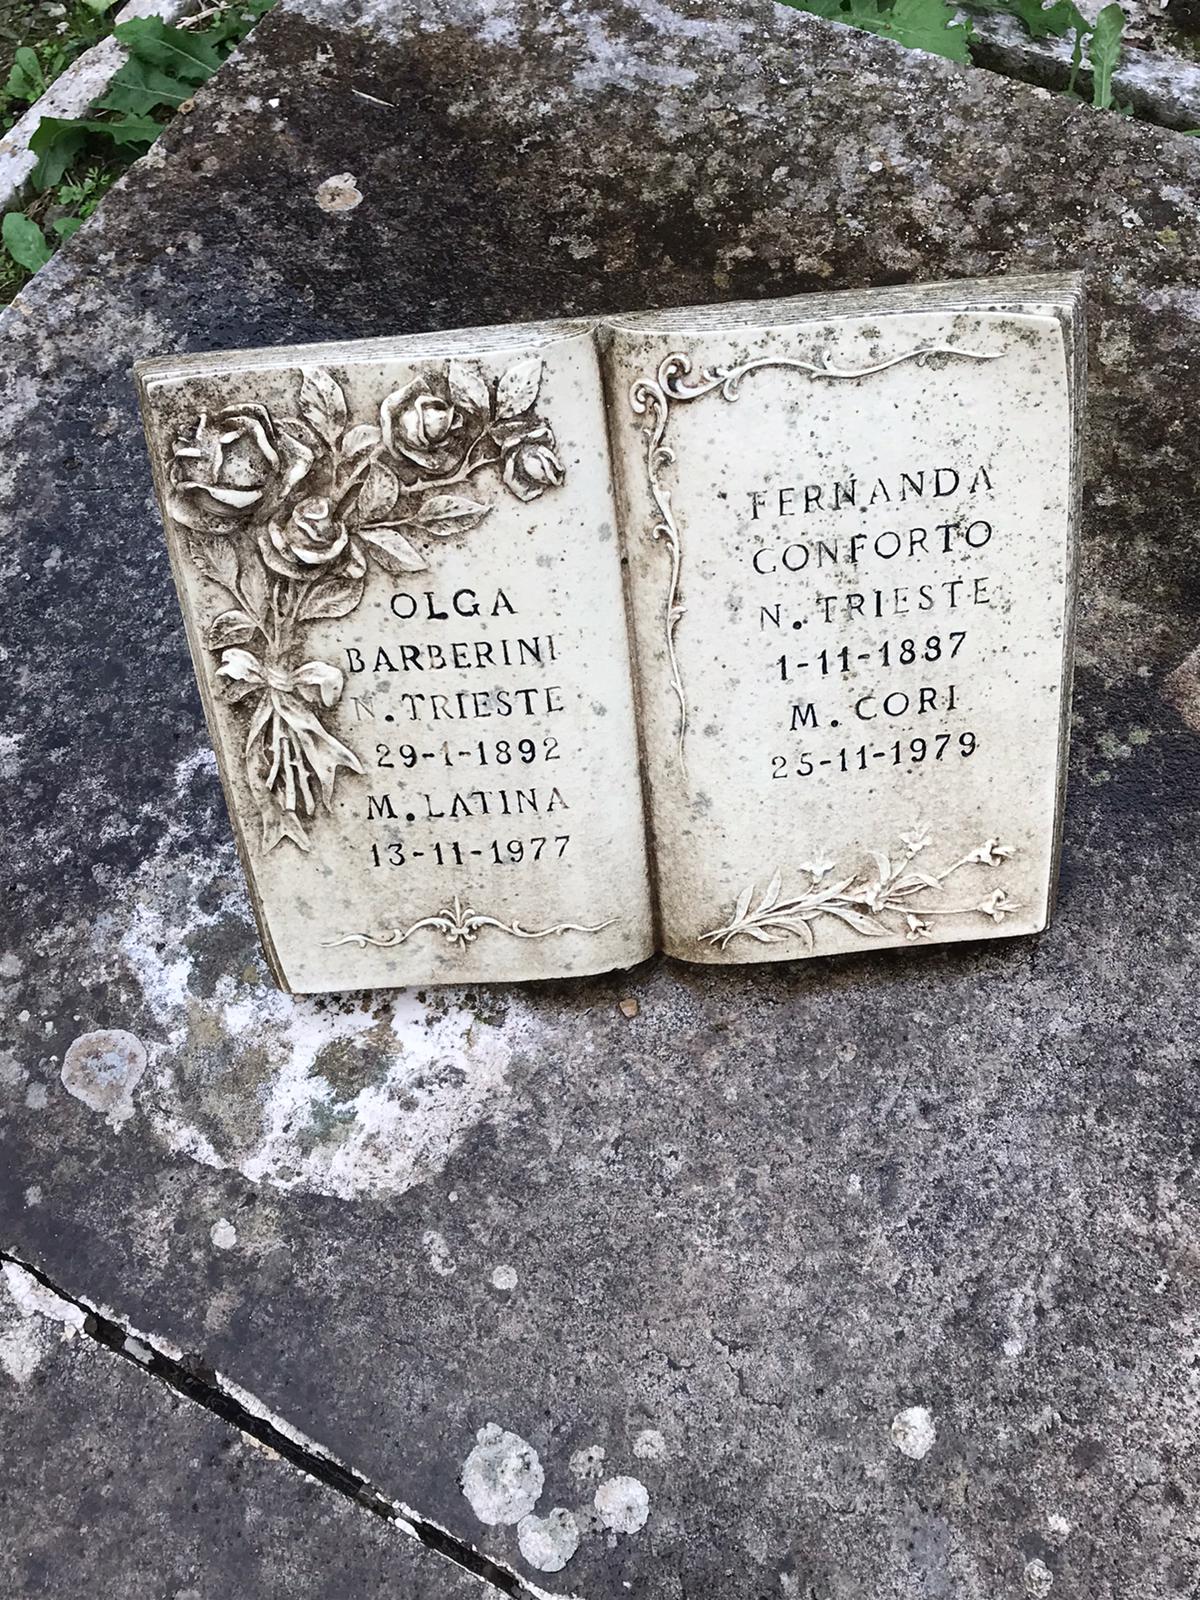 OLGA
BARBERINI
N. TRIESTE
29-1-1892
M. LATINA
13-11-1977
FERNANDA
CONFORTO
N. TRIESTE
1-11-1887
M. CORI
25-11-1979